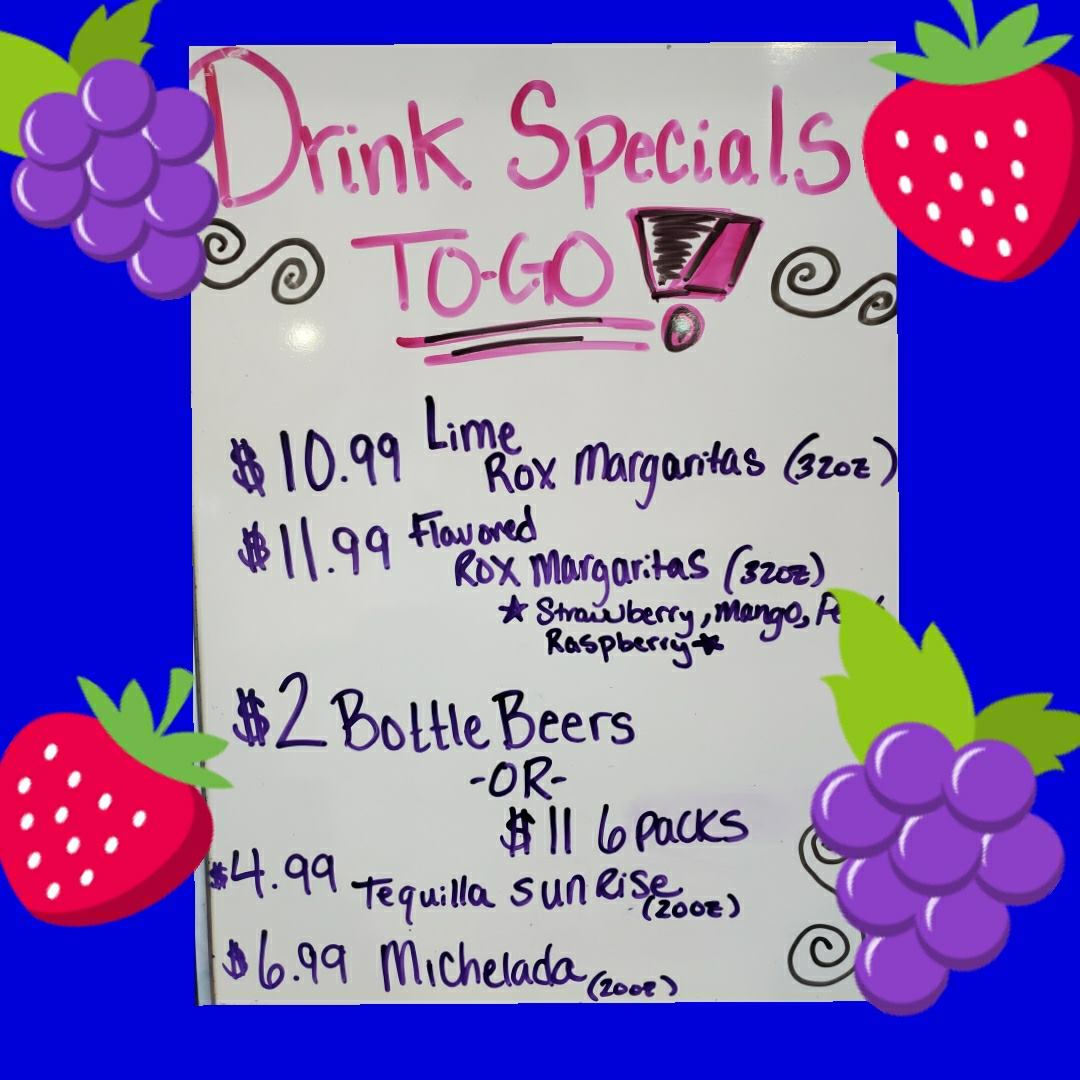 Drink Specials
TO-GO!
$10.99 Lime
Rox Margaritas (32oz)
$11.99 Flavored
Rox Margaritas (32oz)
★ Strawberry, Mango,
Raspberry ★
$2 Bottle Beers
-OR-
$11 6 packs
$4.99 Tequilla Sun Rise
(20oz)
$6.99 Michelada (20oz)